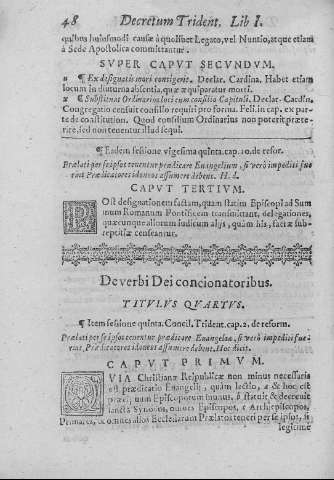 48 Decretum Trident. Lib I.
quibus huiusmodi causæ à quolibet Legato, vel Nuntio, atque etiam
à Sede Apostolica committantur.
SVPER CAPVT SECVNDVM.
¶ Ex designatis mori contigerit. Declar. Cardina. Habet etiam
locum in diuturna absentia, quæ æquiparatur morti.
¶ Substituat Ordinarius loci cum consilio Capituli. Declar. Cardin.
Congregatio censuit consilio requiri pro forma. Fell. in cap. ex par-
te de constitution. Quod consilium Ordinarius non poterit præte-
rire, sed non tenetur illud sequi.
¶ Eadem sessione vigesima quinta. cap. 10. de refor.
Prælati per se ipsos tenentur prædicare Euangelium, si verò impediti fue
rint Prædicatores idoneos assumere debent. H. d.
CAPVT TERTIVM.
POst designationem factam, quam statim Episcopi ad Sum
mum Romanum Pontificem transmittant, delegationes,
quæcunque aliorum iudicum alijs, quàm his, factæ sub-
reptitiæ censeantur.
De verbi Dei concionatoribus.
TITVLVS QVARTVS.
¶ Item sessione quinta. Concil. Trident. cap. 2. de reform.
Prælati per se ipsos tenentur prædicare Euangelium, si verò impediti fue-
rint, Prædicatores idoneos assumere debent. Hoc dicit.
CAPVT PRIMVM.
QVIA Christianæ Reipublicæ non minus necessaria
est prædicatio Euangelij, quàm lectio, & hoc est
præcipuum Episcoporum munus, statuit & decreuit
sancta Synodus, omnes Episcopos, Archiepiscopos,
Primates, & omnes alios Ecclesiarum Prælatos teneri per se ipsos, si
legitime